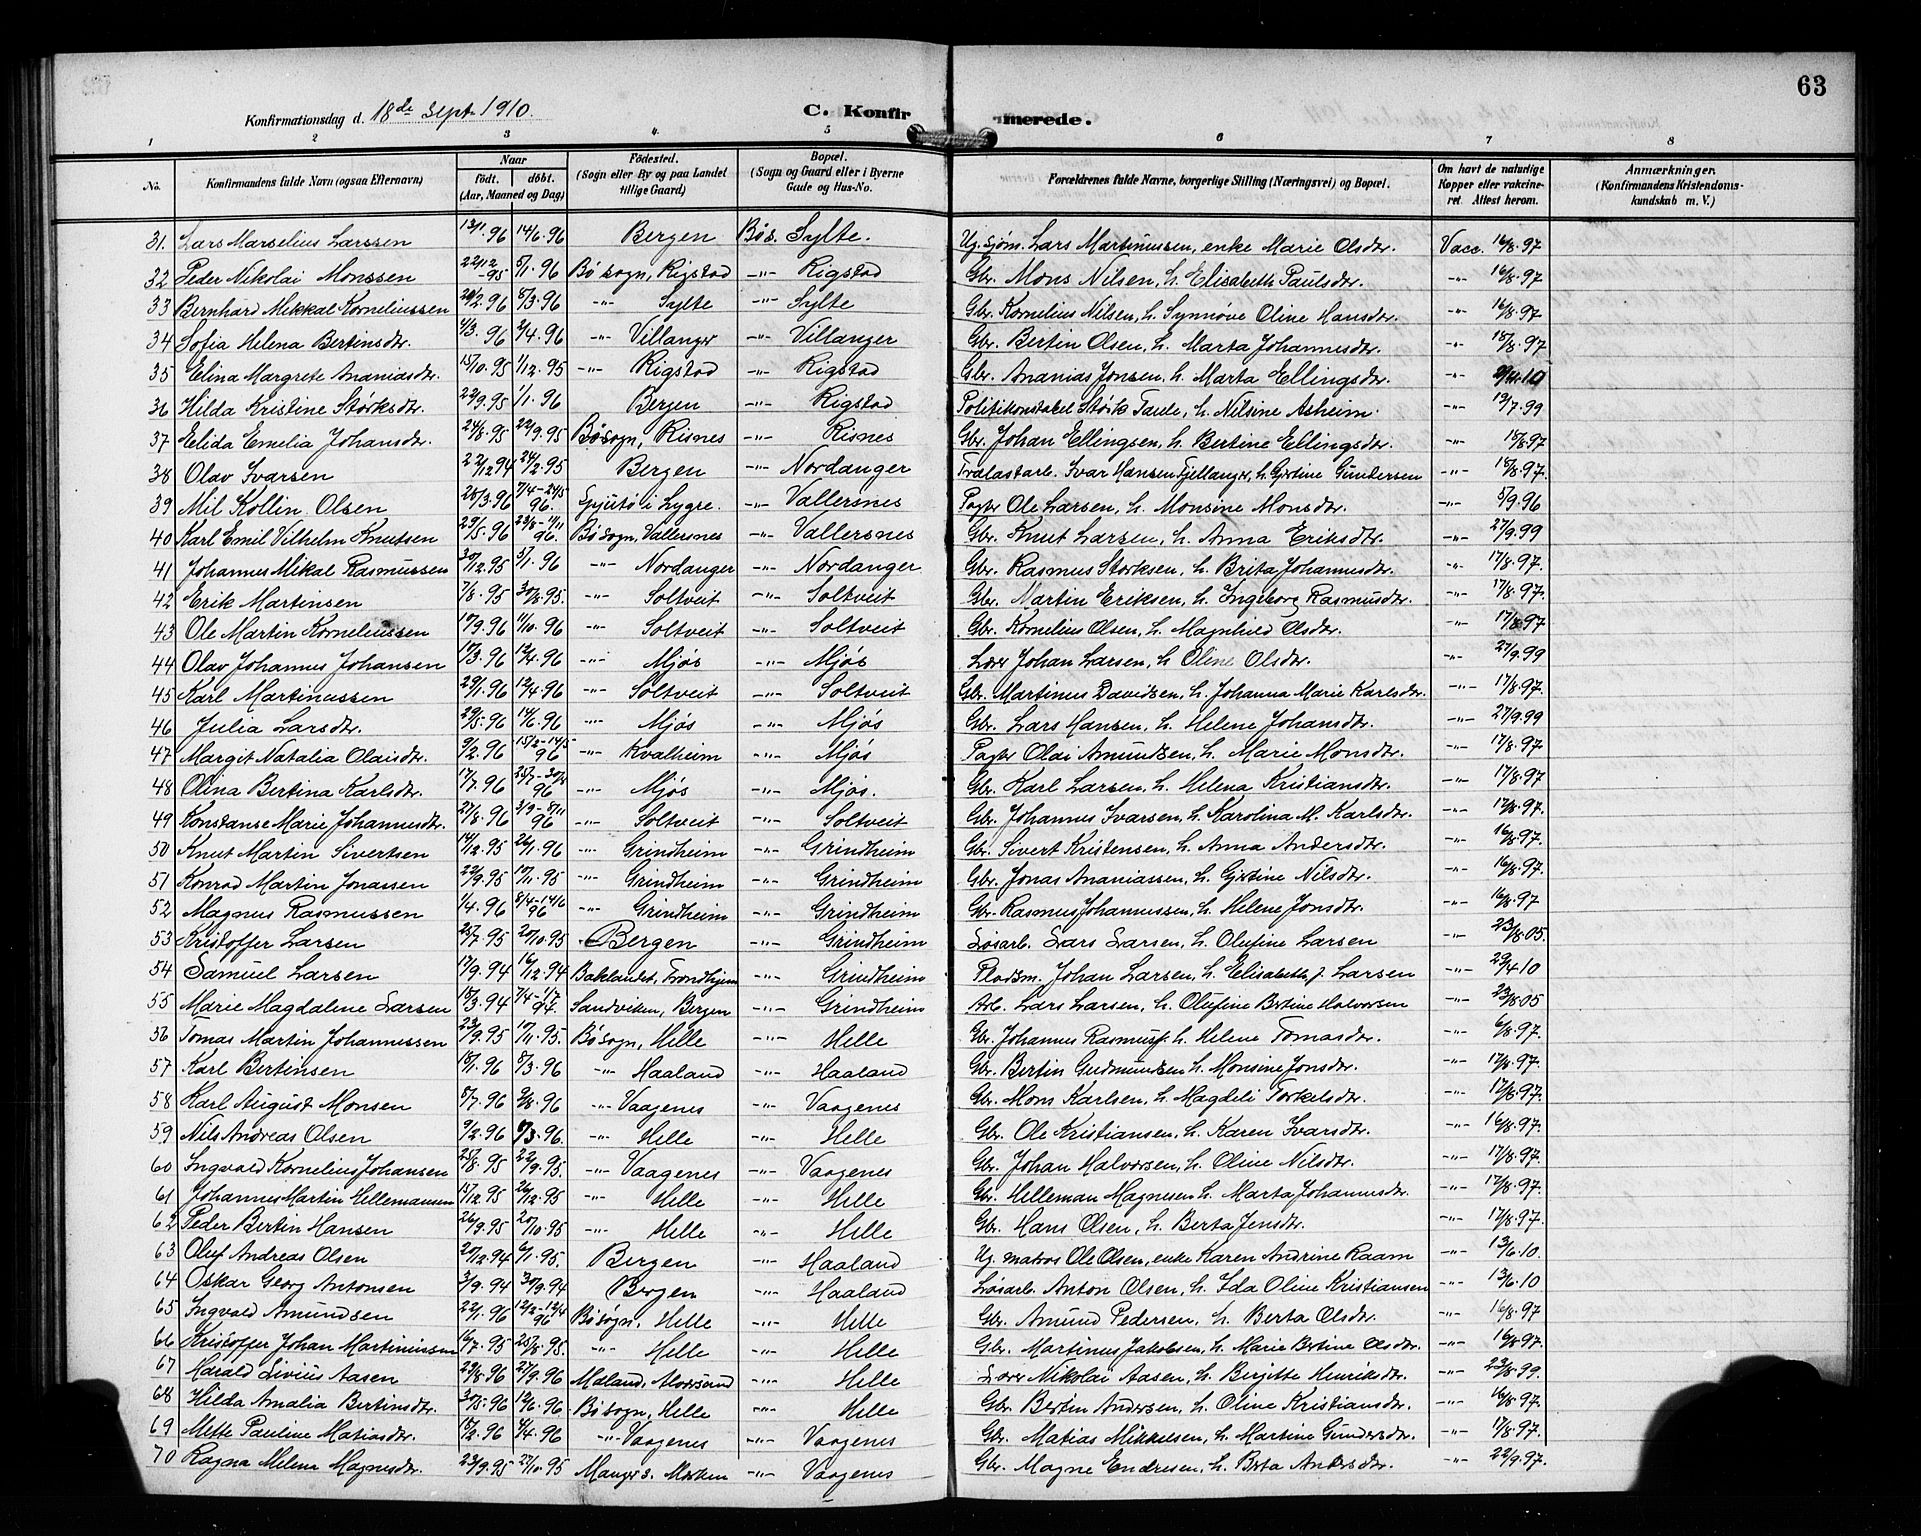 63
Konfirmationsdag d. 18de Sept. 1910.
C. Konfirmerede.
1 2 3 4 5 6 7 8
No. Konfirmandens fulde Navn (ogsaa Efternavn) Naar født. døbt. (Aar, Maaned og Dag) Fødested. (Sogn eller By og paa Landet tillige Gaard) Bopæl. (Sogn og Gaard eller i Byerne Gade og Hus-No. Forældrenes fulde Navne, borgerlige Stilling (Næringsvei) og Bopæl. Om havt de naturlige Kopper eller vakcineret. Attest herom. Anmærkninger. (Konfirmandens Kristendomskundskab m. V.)
31. Lars Marselius Larssen 13/1.96 14/6.96 Bergen Bøs. Sylte. Ug. sjøm. Lars Martinussen, enke Marie Olsdtr. Vacc. 16/8.97
32 Peder Nikolai Monssen 22/12-95 5/1.96 Bø sogn, Rigstad -"- Rigstad Gbr. Mons Nilsen, h. Elisabeth Paulsdtr. -"- 16/8.97
33 Bernhard Mikkal Korneliussen 20/2.96 8/3.96 -"- Sylte -"- Sylte Gbr. Kornelius Nilsen, h. Synnøve Oline Hansdtr. -"- 16/8.97
34 Sofia Helena Bertinsdtr. 4/3.96 2/4.96 -"- Villanger -"- Villanger Gbr. Bertin Olsen, h. Marta Johannesdtr. -"- 18/8.97
35 Elina Margrete Ananiasdtr. 15/10.95 1/12.95 -"- Rigstad -"- Rigstad Gbr. Ananias Jonsen, h. Marta Ellingsdtr. -"-
36 Hilda Kristine Størksdtr. 22/9.95 1/1.96 Bergen -"- Rigstad Politikonstabel Størk Taule, h. Nilsine Asheim. -"- 19/7.99
37 Elida Emelia Johansdtr. 24/8.95 22/9.95 Bøsogn, Risnes -"- Risnes Gbr. Johan Ellingsen, h. Bertine Ellingsdtr. -"- 18/8.97
38 Olav Ivarsen 22/12.94 24/2.95 Bergen -"- Nordanger Trælastarb. Ivar Hansen Fjellanger, h. Gjertine Gundersen -"- 18/8.97.
39 Mil Kollin Olsen 28/3.96 7/4-24/5 96. i Lygre. -"- Vallersnes Pagtr Ole Larsen, h. Monsine Monsdtr. -"- 5/9.96
40 Karl Emil Vilhelm Knutsen 29/5.96 23/8-1/11 96. Bøsogn, Vallersnes -"- Vallersnes Gbr. Knut Larsen, h. Anna Eriksdtr. -"- 27/9.99
41 Johannes Mikal Rasmussen 30/12.95 5/1.96 -"- Nordanger -"- Nordanger Gbr. Rasmus Storksen, h. Brita Johannesdtr. -"- 17/8.97.
42 Erik Martinsen 7/8.95 30/8.95. -"- Soltveit -"- Soltveit Gbr. Martin Eriksen, h. Ingeborg Rasmusdtr. -"- 17/8.97.
43 Ole Martin Korneliussen 17/9.96 11/10.96 -"- Soltveit -"- Soltveit Gbr. Kornelius Olsen, h. Magnhild Olsdtr. -"- 17/8.97
44 Olav Johannes Johansen 17/3.96 12/4.96 -"- Mjøs -"- Mjøs Lærer Johan Larsen, h Oline Olsdtr. -"- 27/9.99
45 Karl Martinussen 29/1.96 12/4.96 -"- Soltveit -"- Soltveit Gbr. Martinus Davidsen, h. Johanna Marie Karlsdtr. -"- 17/8.97.
46 Julia Larsdtr. 29/5.96 14/6.96 -"- Mjøs -"- Mjøs Gbr. Lars Hansen, h. Helene Johansdtr. -"- 27/9.99
47 Margit Natalia Olaisdtr. 9/2.96 15/2-14/5 96 -"- Kvalheim -"- Mjøs Pagtr Olai Amundsen, h. Marie Monsdtr. -"- 17/8.97.
48 Olina Bertina Karlsdtr. 17/7.96 96 -"- Mjøs -"- Mjøs. Gbr. Karl Larsen, h. Helena Kristiansdtr. -"- 17/8.97
49 Konstanse Marie Johannesdtr. 27/8.96 3/9-8/11 96 -"- Soltveit -"- Soltveit Gbr. Johannes Ivarsen, h. Karolina M. Karlsdtr. -"- 17/8.97.
50 Knut Martin Sivertsen 14/12.95 26/1.96 -"- Grindheim -"- Grindheim Gbr. Sivert Kristensen, h. Anna Andersdtr. -"- 16/8.97.
51 Konrad Martin Jonassen 22/9.95 17/11.95 -"- Grindheim -"- Grindheim Gbr. Jonas Ananiassen, h. Gjertine Nilsdtr. -"- 16/8.97.
52 Magnus Rasmussen 1/4.96 8/4-14/6 96 -"- Grindheim -"- Grindheim Gbr. Rasmus Johannessen, h. Helene Jonsdtr. -"- 16/8.97
53 Kristoffer Larsen 25/7.95 20/10.95 Bergen -"- Grindheim Løsarb. Lars Larsen, h. Olufine Larsen -"- 23/8.05.
54 Samuel Larsen 17/9.94 16/12.94 Baklandet, Trondhjem -"- Grindheim Pladsm. Johan Larsen, h. Elisabeth J. Larsen -"- 29/4.10
55 Marie Magdalene Larsen 18/3.94 7/4-1/7 94. Sandviken, Bergen -"- Grindheim Arb. Lars Larsen, h. Olufine Bertine Halvorsen -"- 23/8.05
56 Tomas Martin Johannessen 23/9.95 17/11.95. Bøsogn, Helle -"- Helle Gbr. Johannes Rasmusf. h. Helene Tomasdtr. -"- 6/8.97.
57 Karl Bertinsen 18/1.96 8/3.96 -"- Haaland -"- Haaland Gbr. Bertin Gudmundsen h. Monsine Jonsdtr. -"- 17/8.97.
58 Karl August Monsen 8/7.96 9/8.96 -"- Vaagenes -"- Vaagenes Gbr. Mons Karlsen, h. Magdeli Torkelsdtr. -"- 17/8.97.
59 Nils Andreas Olsen 9/2.96 8/3.96. -"- Helle -"- Helle Gbr. Ole Kristiansen, h. Karen Ivarsdtr. -"- 16/8.97.
60 Ingvald Kornelius Johansen 25/8.95 22/9.95. -"- Vaagenes -"- Vaagenes Gbr. Johan Halvorsen, h. Oline Nilsdtr. -"- 17/8.97.
61 Johannes Martin Hellemansen 15/12.95 26/12.95 -"- Helle -"- Helle Gbr. Helleman Magnesen h. Marta Johannesdtr. -"- 17/8.97.
62 Peder Bertin Hansen 26/9.95 20/10.95 -"- Helle -"- Helle Gbr. Hans Olsen, h. Berta Jensdtr. -"- 17/8.97.
63 Oluf Andreas Olsen 20/12.94 6/1.95. Bergen -"- Haaland Ug. matros Ole Olsen, enke Karen Andrine Raam -"- 13/6.10.
64 Oskar Georg Antonsen 3/9.94 30/9.94 Bergen -"- Haaland Løsarb. Anton Olsen, h. Ida Oline Kristiansen -"- 13/6.10
65 Ingvald Amundsen 22/1.96 12/2-12/4 96 Bøsogn, Helle -"- Helle Gbr. Amund Pedersen, h. Berta Olsdtr. -"- 16/8.97
66 Kristoffer Johan Martinussen 16/7.95 25/8.95. -"- Helle -"- Helle Gbr. Martinus Jakobsen, h. Marie Bertine Olsdtr. -"- 16/8.97.
67 Harald Livius Aasen 29/8.96 27/9.96 Maland, Alversund -"- Helle Lærer Nikolai Aasen, h. Birgitte Henriksdtr. -"- 23/8.99
68 Hilda Amalia Bertinsdtr. 30/5.96 12/6.96 Bøsogn, Helle -"- Helle Gbr. Bertin Andersen, h. Oline Kristiansdtr. -"- 16/8.97.
69 Mette Pauline Matiasdtr. 15/2.96 4/4.96 -"- Vaagenes -"- Vaagenes Gbr. Matias Mikkelsen, h. Martine Gundersdtr. -"- 17/8.97.
70 Ragna Helena Magnesdtr. 23/9.95 27/10.95 Manger s. Marken -"- Vaagenes Gbr. Magne Endresen, h. Berta Andersdtr. -"- 22/9.97.